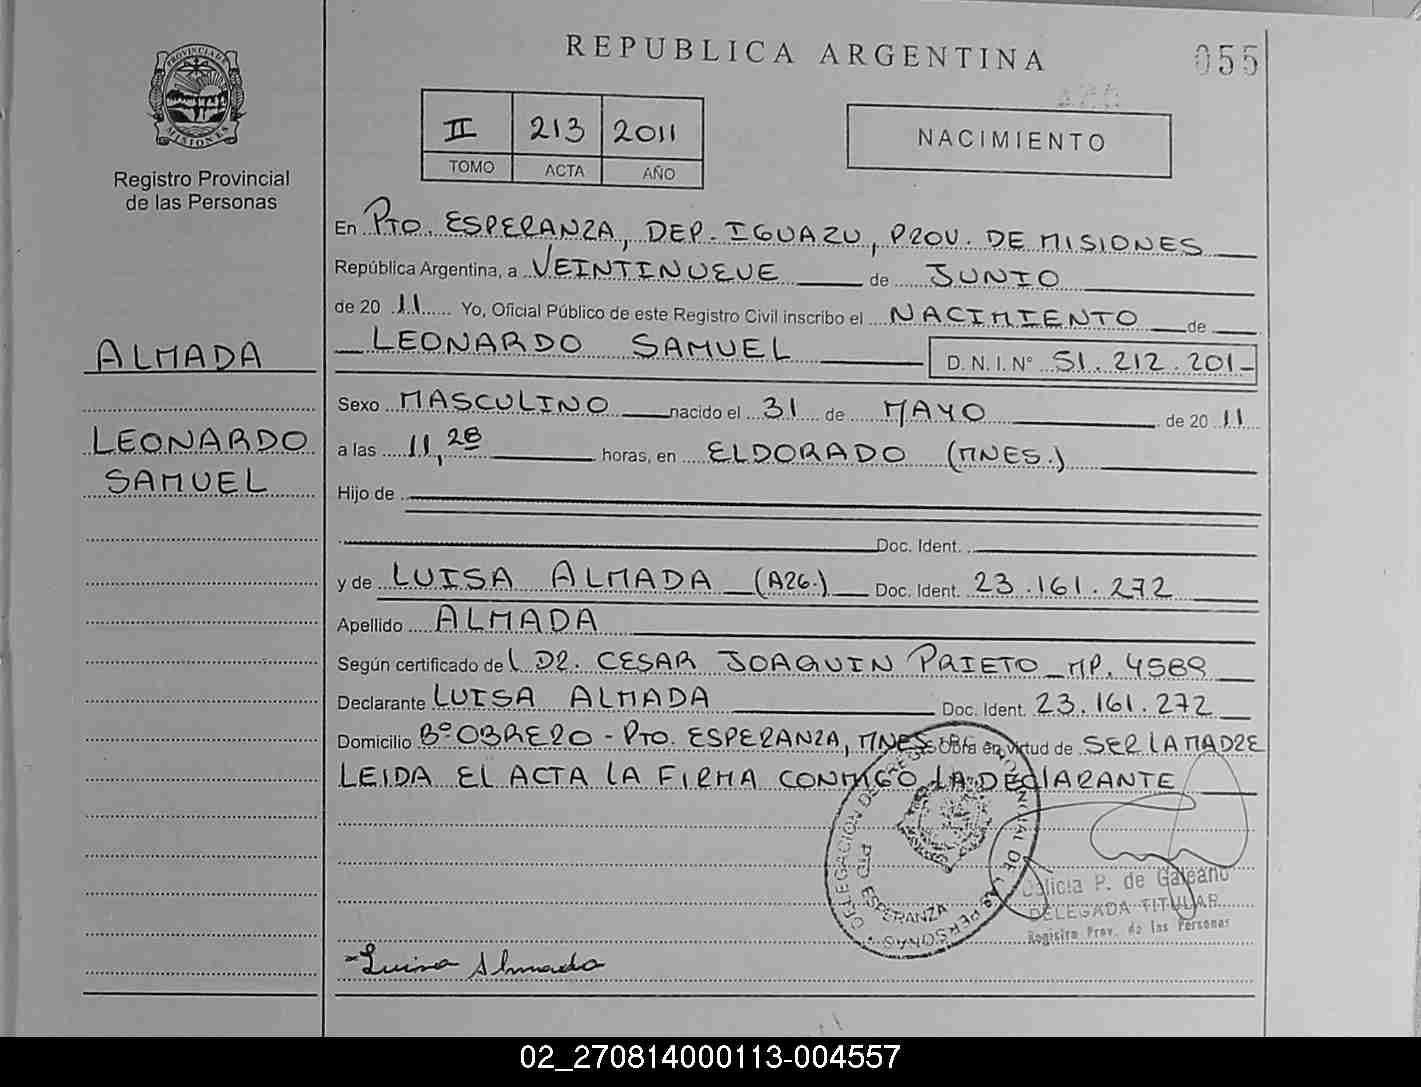 REPUBLICA ARGENTINA
055
PROVINCIA DE MISIONES
Registro Provincial
de las Personas
II 213 2011
TOMO ACTA AÑO
NACIMIENTO
En PTO. ESPERANZA, DEP. IGUAZU, PROV. DE MISIONES
República Argentina, a VEINTINUEVE de JUNIO
de 20 11 Yo, Oficial Público de este Registro Civil inscribo el NACIMIENTO de
LEONARDO SAMUEL D. N. I. Nº 51.212.201-
ALMADA
LEONARDO
SAMUEL
Sexo MASCULINO nacido el 31 de MAYO de 20 11
a las 11,28 horas, en ELDORADO (MNES.)
Hijo de
Doc. Ident.
y de LUISA ALMADA (ARG.) Doc. Ident. 23.161.272
Apellido ALMADA
Según certificado de DR. CESAR JOAQUIN PRIETO MP. 4589
Declarante LUISA ALMADA Doc. Ident. 23.161.272
Domicilio Bº OBRERO - PTO. ESPERANZA, MNES Obra en virtud de SER LA MADRE
LEIDA EL ACTA LA FIRMA CONMIGO LA DECLARANTE
DELEGACION DEL REGISTRO PROVINCIAL DE LAS PERSONAS
PTO ESPERANZA
Alicia P. de Galeano
DELEGADA TITULAR
Registro Prov. de las Personas
Luisa Almada
02_270814000113-004557